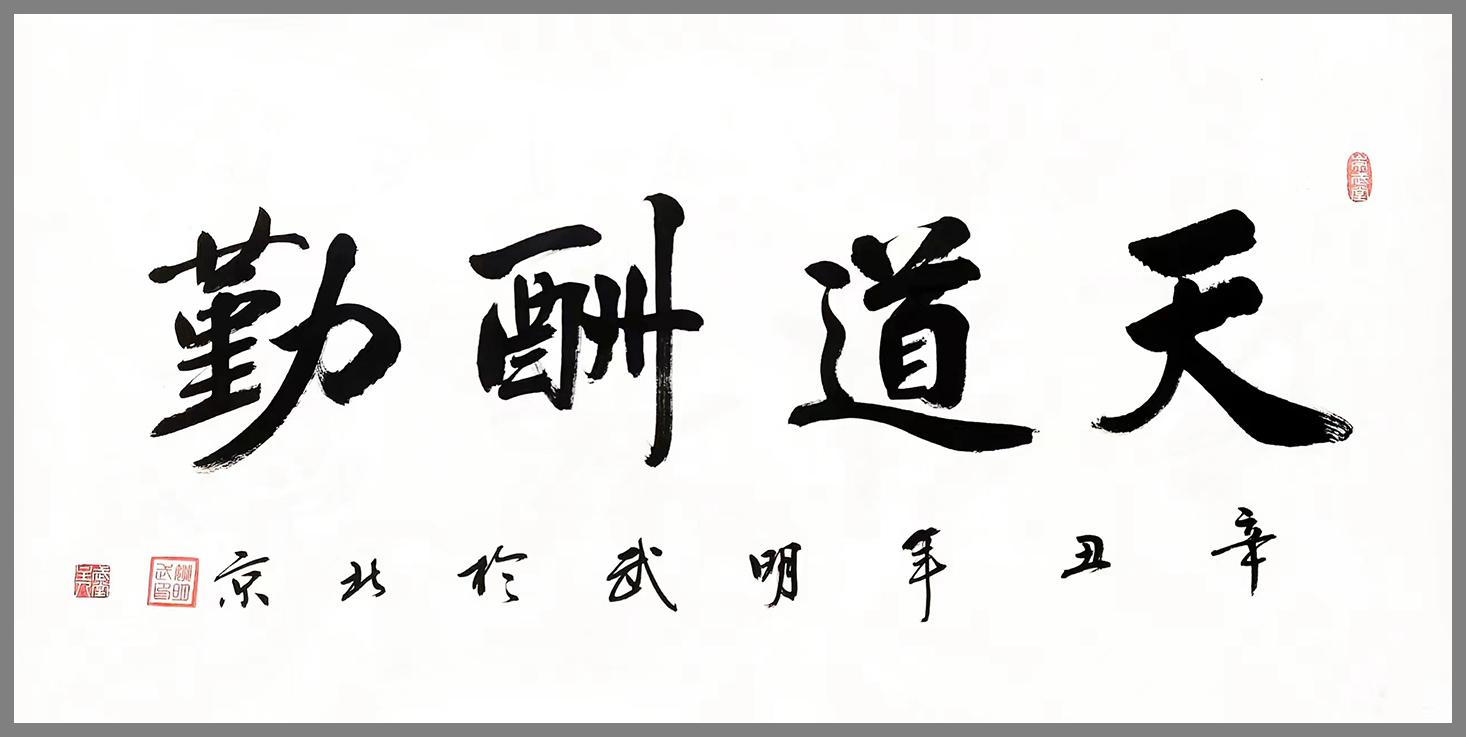 天道酬勤
辛丑年明武於北京